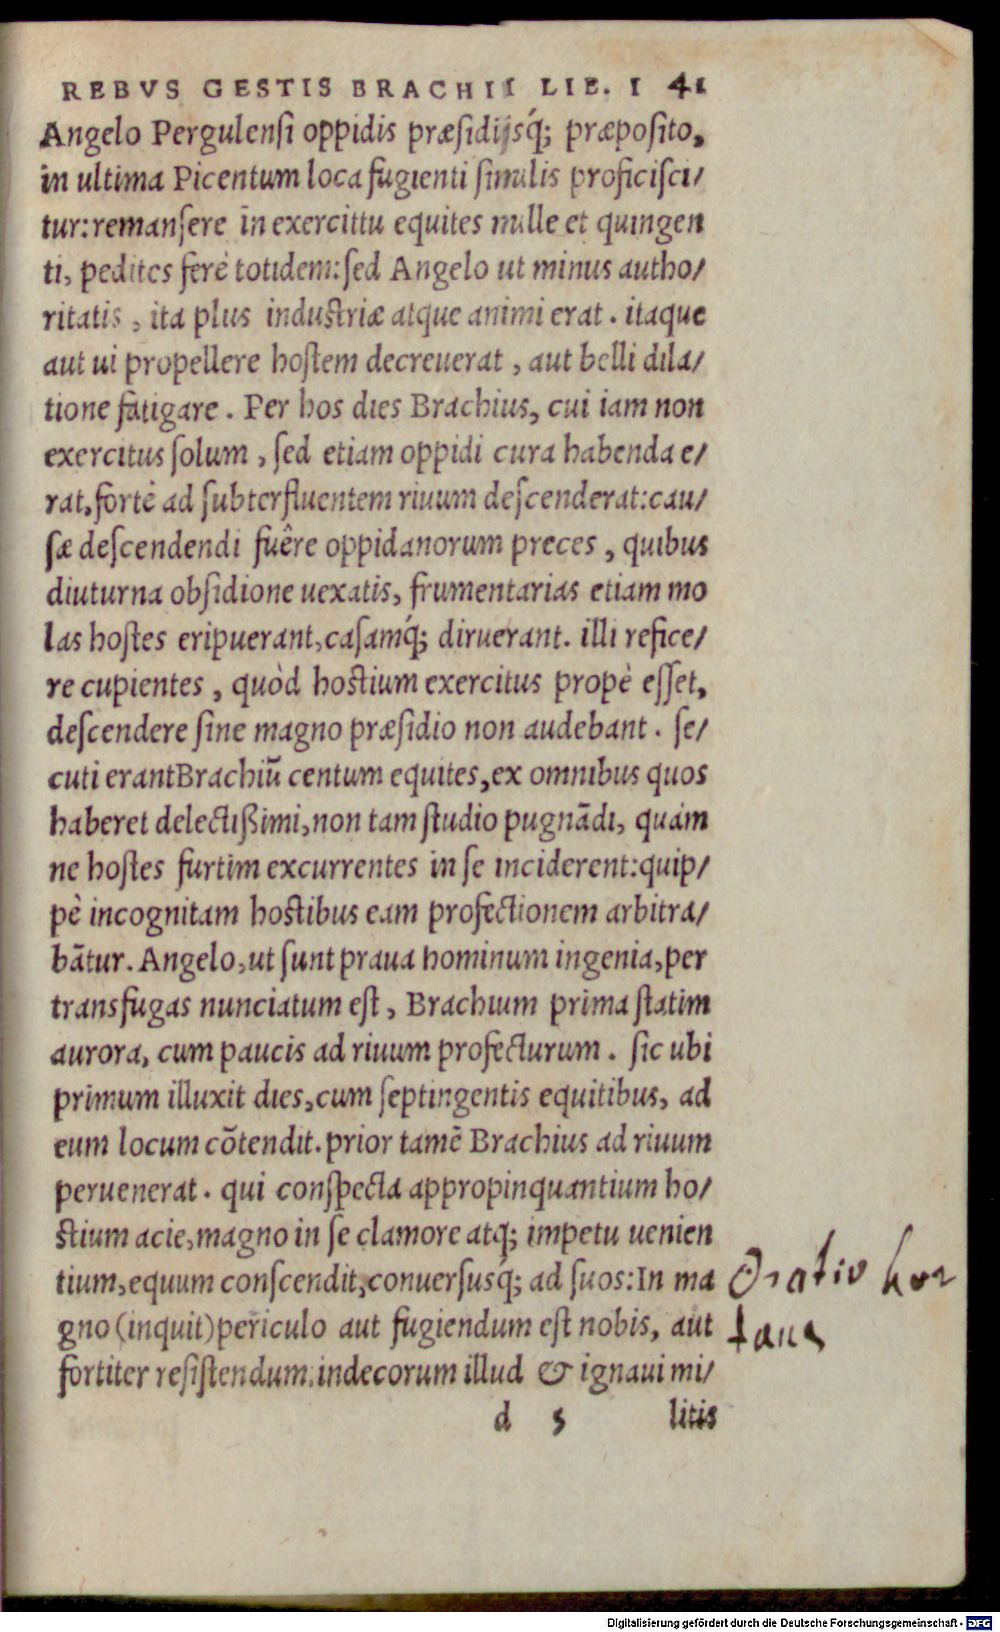 REBVS GESTIS BRACHII LIB. I 41
Angelo Pergulensi oppidis præsidijsq́; præposito,
in ultima Picentum loca fugienti similis proficisci/
tur: remansere in exercittu equites mille et quingen
ti, pedites ferè totidem: sed Angelo ut minus autho/
ritatis, ita plus industriæ atque animi erat. itaque
aut ui propellere hostem decreuerat, aut belli dila/
tione fatigare. Per hos dies Brachius, cui iam non
exercitus solum, sed etiam oppidi cura habenda e/
rat, fortè ad subterfluentem riuum descenderat: cau/
sæ descendendi fuêre oppidanorum preces, quibus
diuturna obsidione uexatis, frumentarias etiam mo
las hostes eripuerant, casamq́; diruerant. illi refice/
re cupientes, quòd hostium exercitus propè esset,
descendere sine magno præsidio non audebant. se/
cuti erant Brachiū centum equites, ex omnibus quos
haberet delectißimi, non tam studio pugnādi, quám
ne hostes furtim excurrentes in se inciderent: quip/
pè incognitam hostibus eam profectionem arbitra/
bātur. Angelo, ut sunt praua hominum ingenia, per
transfugas nunciatum est, Brachium prima statim
aurora, cum paucis ad riuum profecturum. sic ubi
primum illuxit dies, cum septingentis equitibus, ad
eum locum cōtendit. prior tamē Brachius ad riuum
peruenerat. qui conspecta appropinquantium ho/
stium acie, magno in se clamore atq; impetu uenien
tium, equum conscendit, conuersusq́; ad suos: In ma
gno (inquit) periculo aut fugiendum est nobis, aut
fortiter resistendum. indecorum illud & ignaui mi/
d 5 litis
Oratio hor
tans
Digitalisierung gefördert durch die Deutsche Forschungsgemeinschaft - DFG